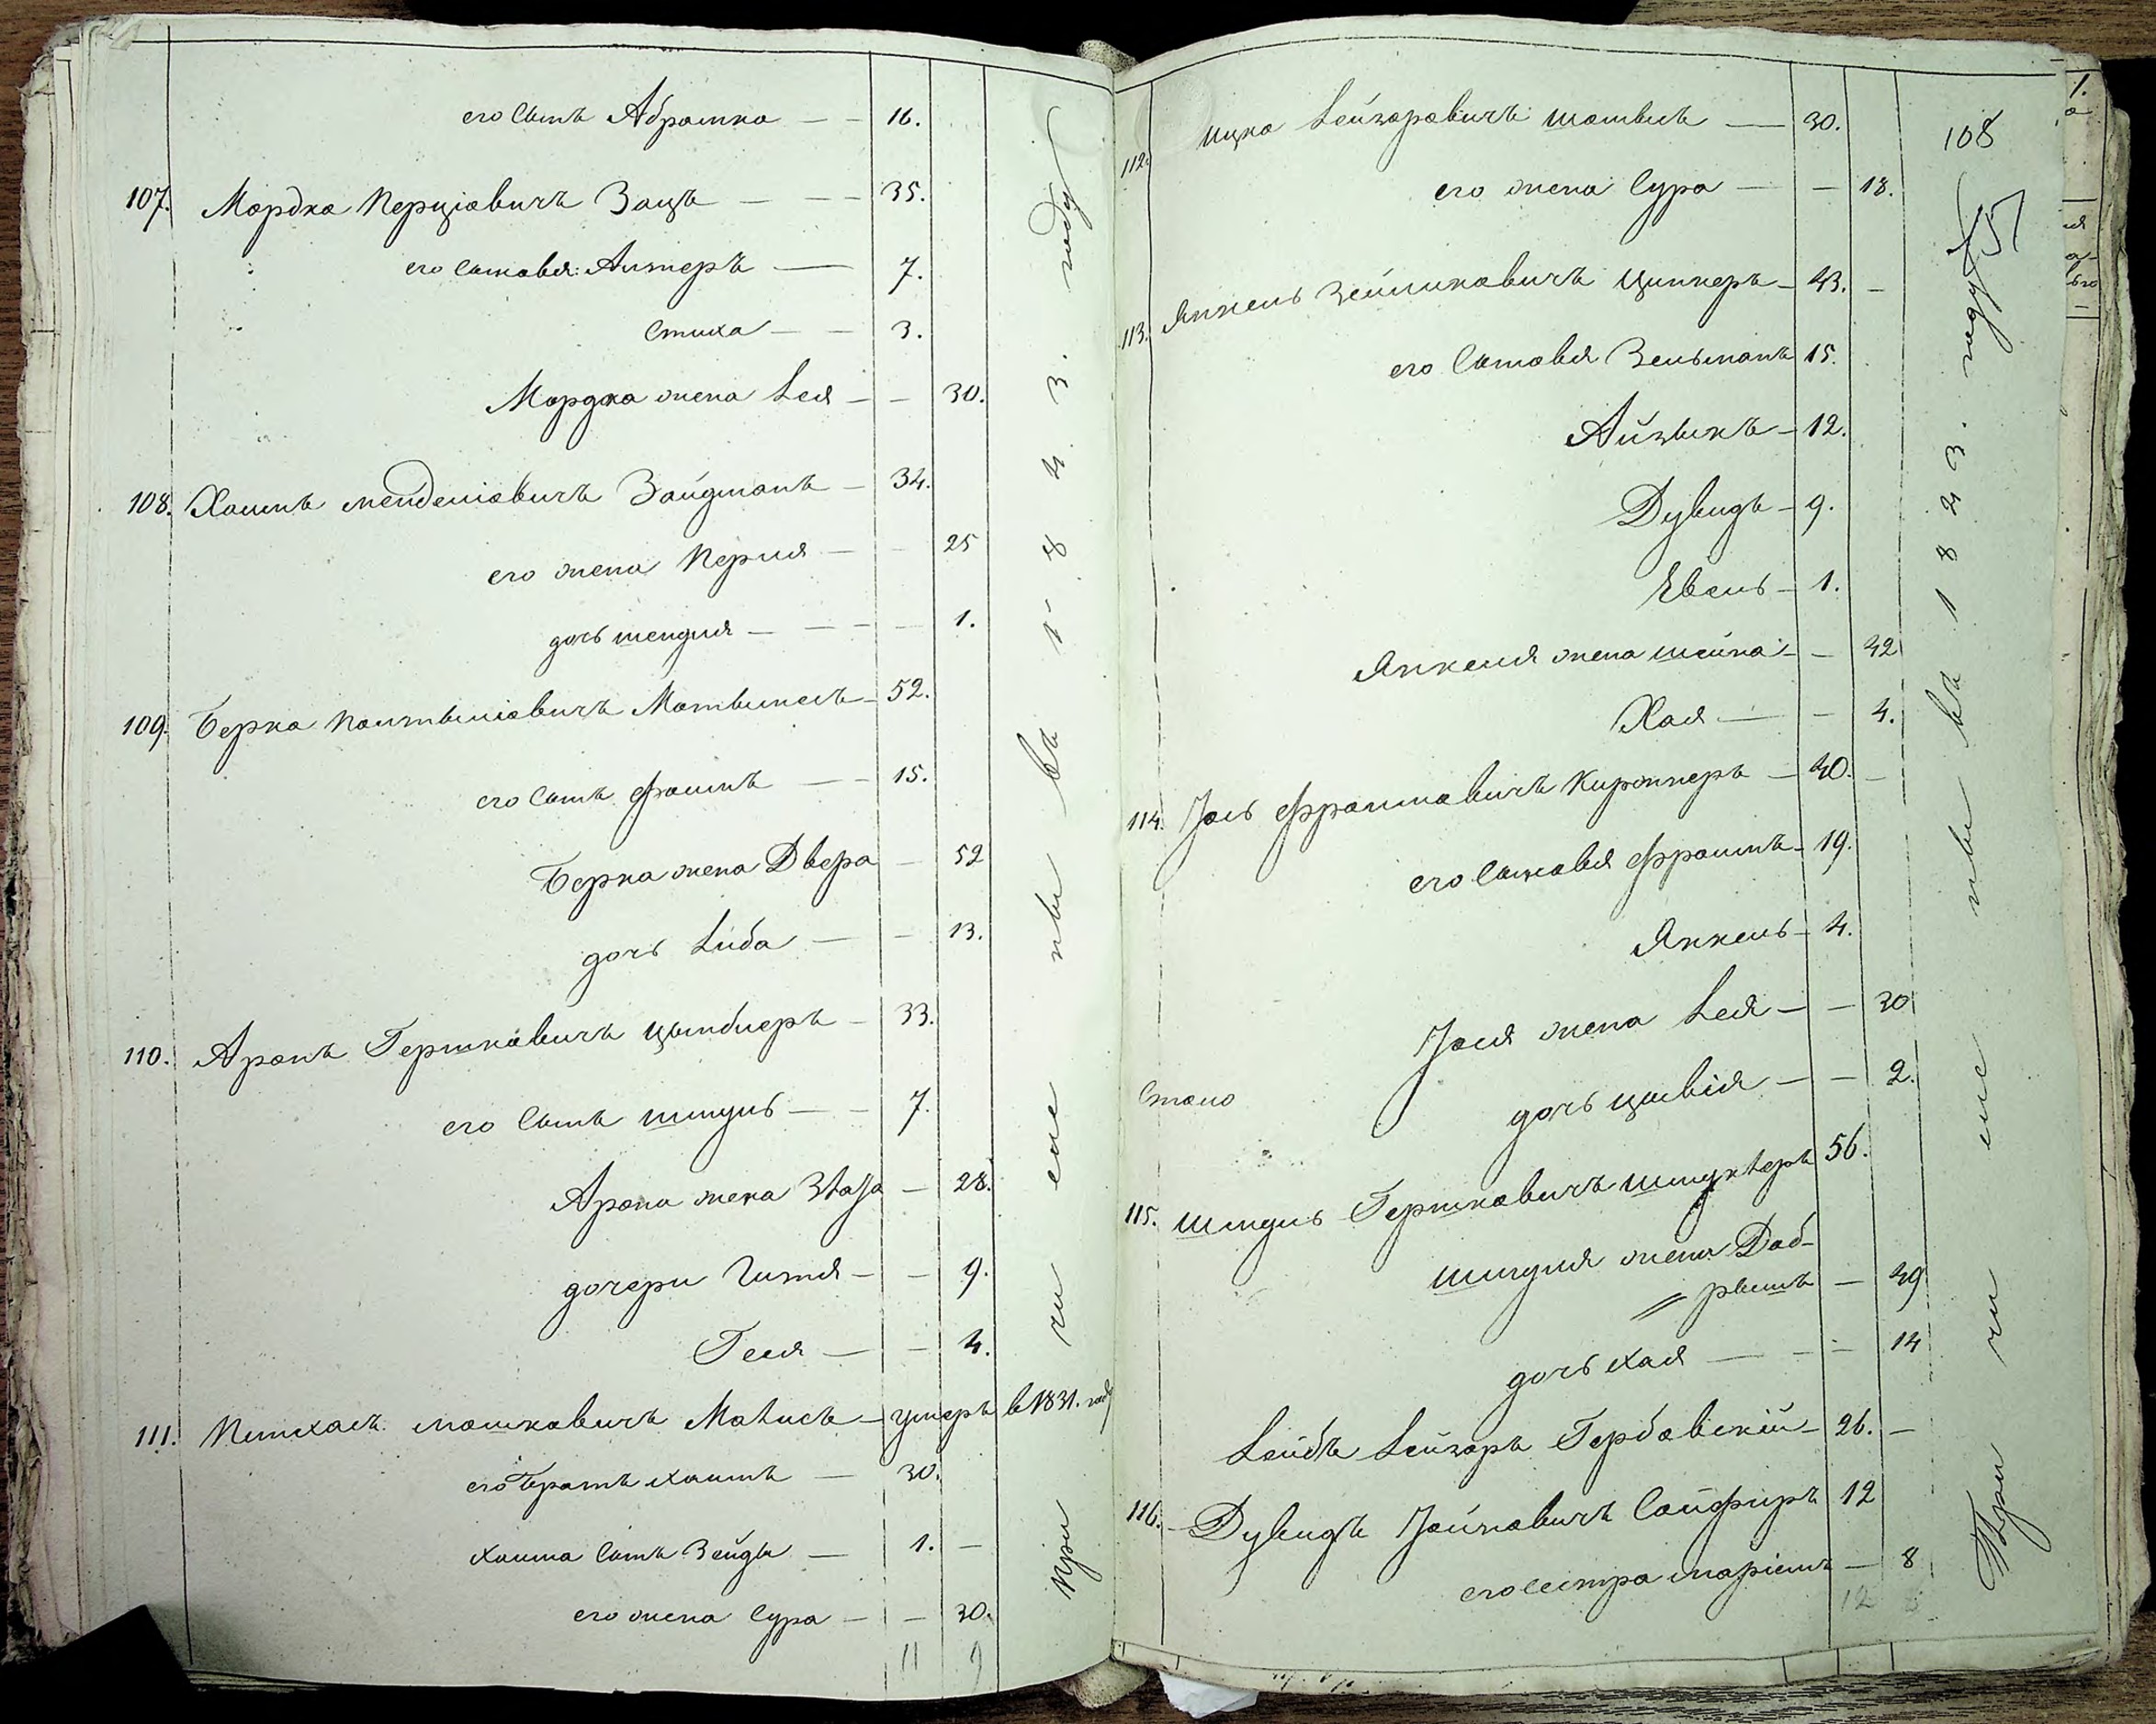 его Сынъ Абрамко — — 16.
107. Мордко Перціовичъ Зацъ — — — 35.
его Сыновья: Алтеръ — 7.
Симха — — 3.
Мордка жена Лея — — 30.
108. Хаимъ Менделіовичъ Зайдманъ — 34.
его жена Перля — — 25
дочь Шендля — — — — 1.
109. Берко
его Сынъ Фроимъ — — 15.
Берка жена Двера — 52
дочь Либа — — 13.
110. Аронъ Гершковичъ Цымблеръ — 33.
его Сынъ Шмуль — — 7.
Арона жена Злата — 28.
дочери Гитля — — 9.
Геля — — 4.
111. Пинхасъ Мошковичъ умеръ в 1831. году
его Братъ Хаимъ — 30.
Хаима Сынъ Зейда — 1. —
его жена Сура — — 30.
11 9
При чи сле ны въ 1 8 4 3. году
108
112. Ицко Лейзоровичъ — 30.
его жена Сура — — 18.
113. Янкель Зельмановичъ Ципперъ — 43. —
его Сыновья Зельманъ 15.
Айзыкъ — 12.
Дувидъ — 9.
— 1.
Янкеля жена Шейна — — 42
Хая — — 4.
114. Іось Фроимовичъ — 40. —
его Сыновья Фроимъ — 19.
Янкель — 4.
Іося жена Лея — — 30
дочь Цывія — — 2.
115. Шмуль Гершковичъ 56.
Шмуля жена Доб-
рышъ — 49
дочь Хая — — — 14
Лейбъ Лейзоръ Гербовіский — 26. —
116. Дувидъ Сайфиръ 12
его сестра Маріемъ — 8
12
При чи сле ны въ 1 8 4 3. году